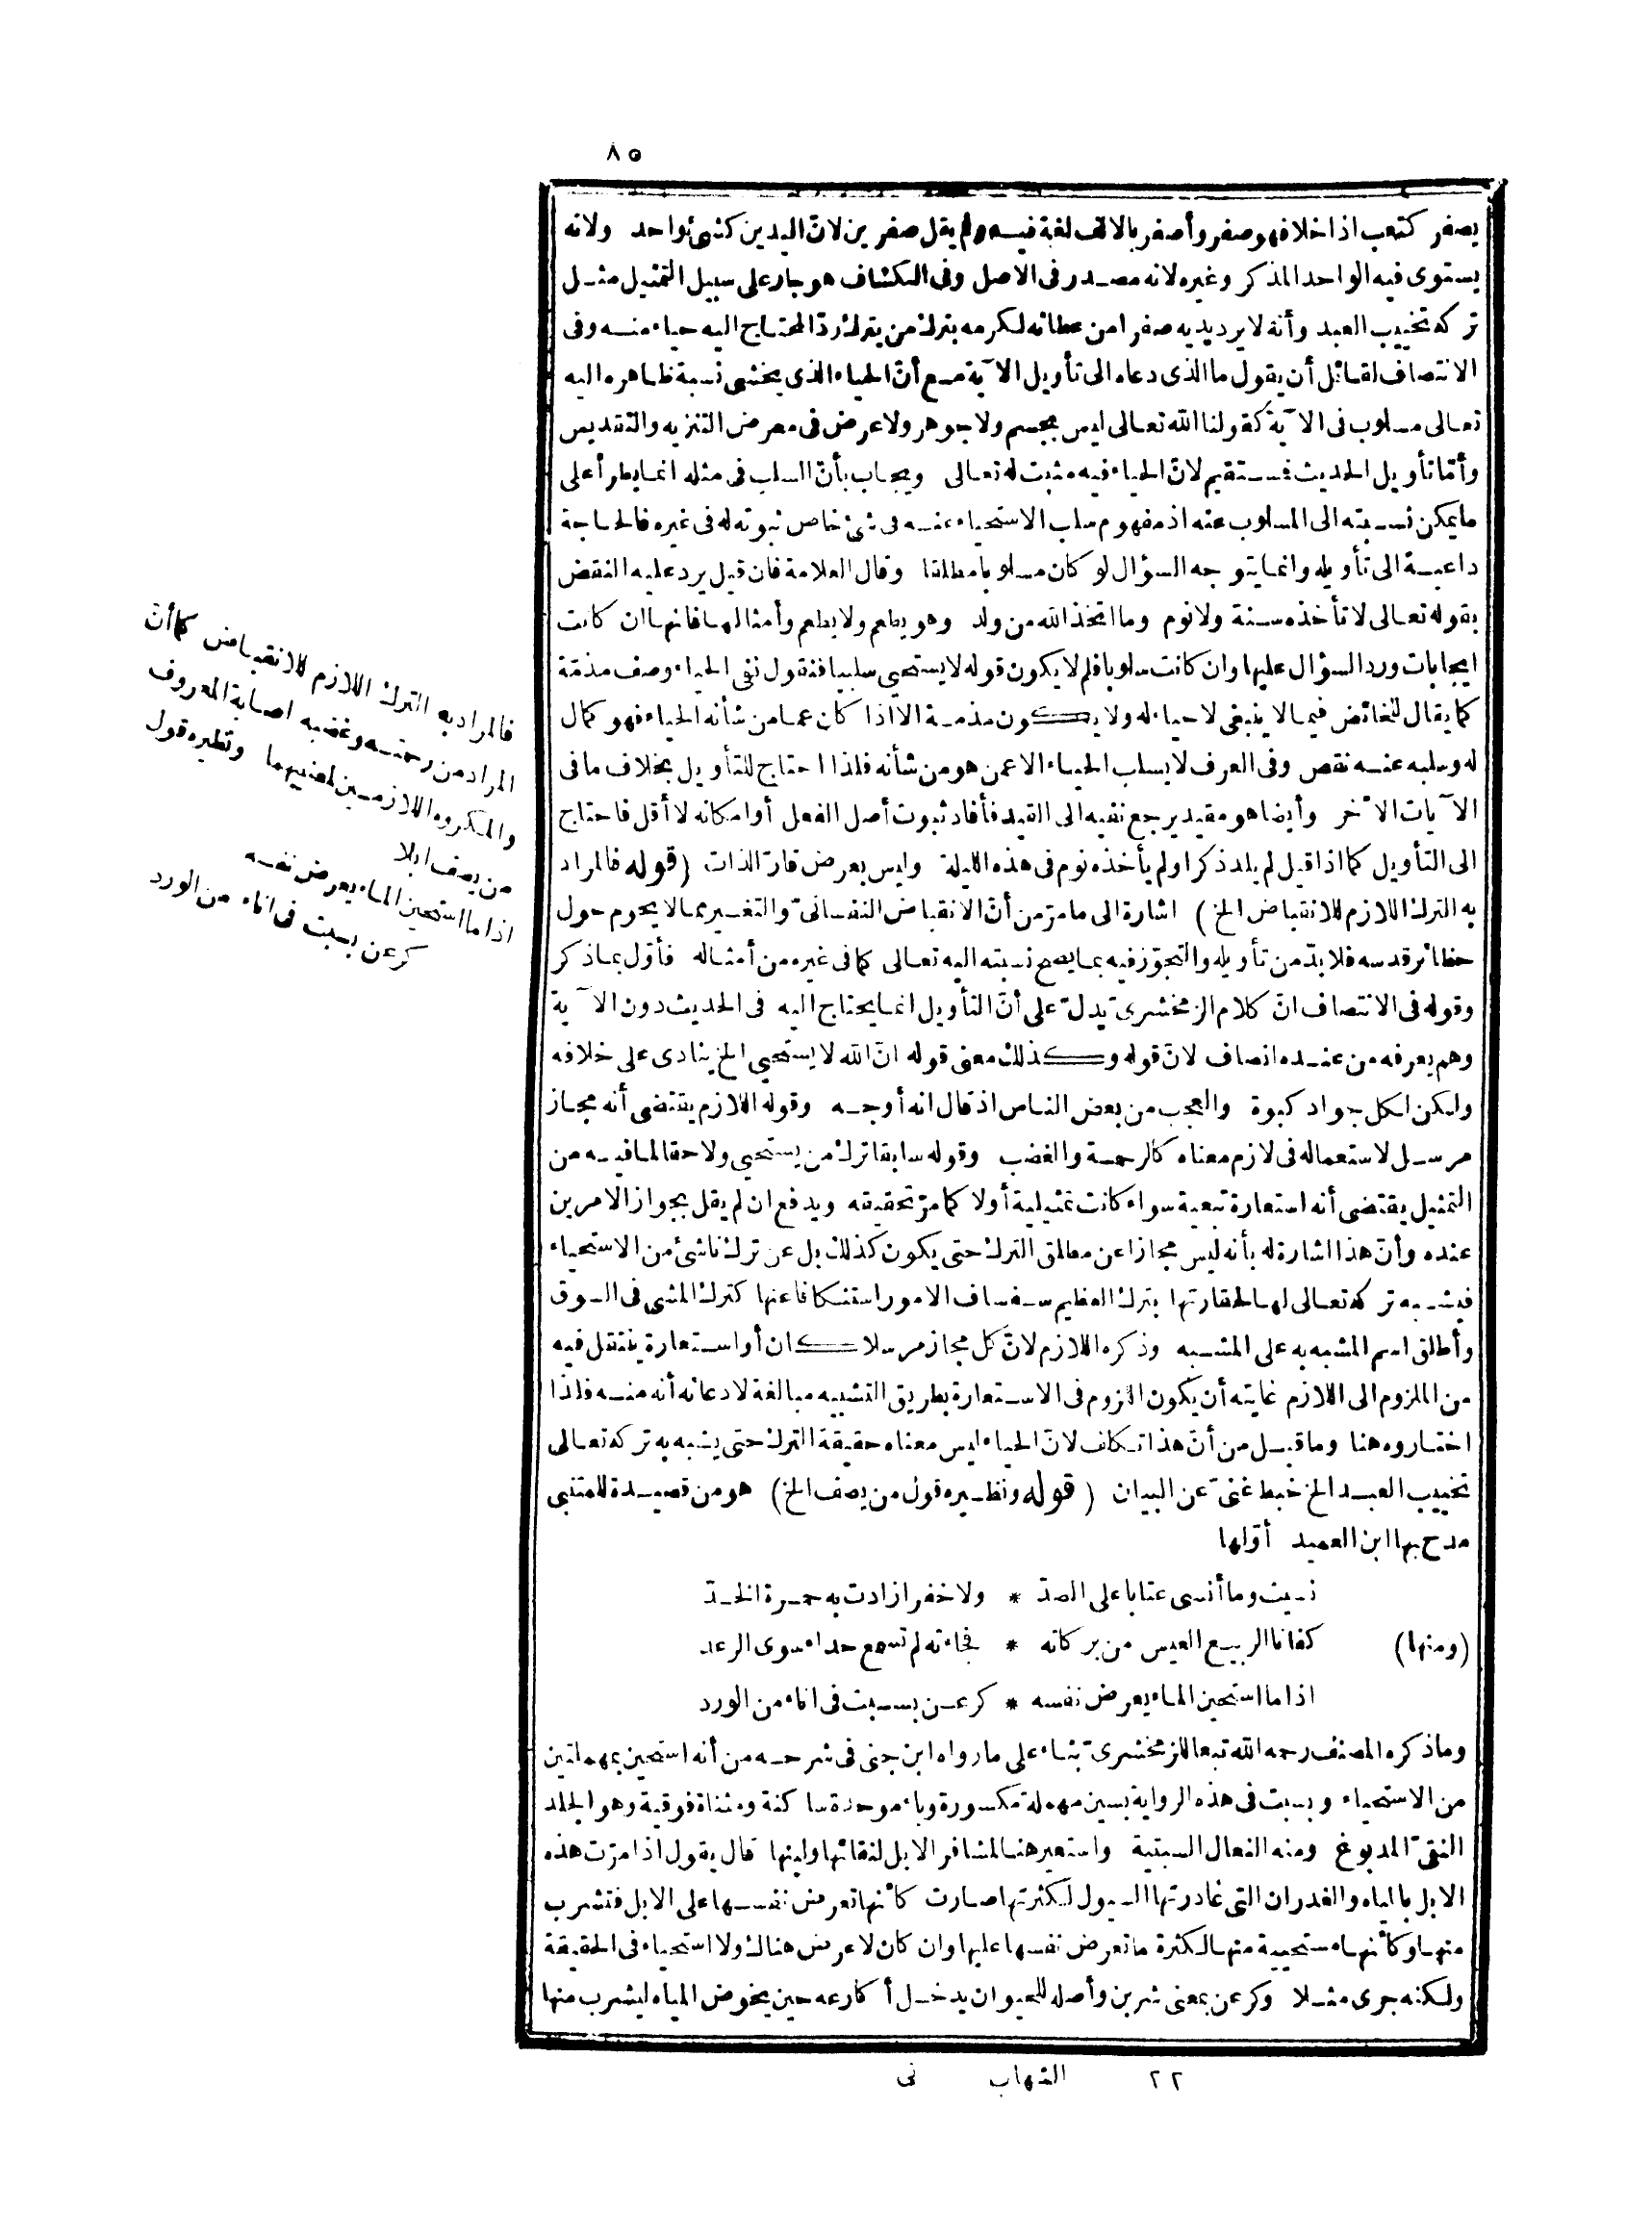 ٨٥
يصفر كتعب اذا خلا فهو صفر وأصفر بالالف لغة فيه ولم يقل صفرين لانّ اليدين كشئ واحد ولانه
يستوى فيه الواحد المذكر وغيره لانه مصدر فى الاصل وفى الكشاف هو جار على سبيل التمثيل مثل
تركه تخييب العبد وأنه لا يرد يديه صفرا من عطائه لكرمه بترك من يترك ردّ المحتاج اليه حياء منه وفى
الانتصاف لقائل أن يقول ما الذى دعاه الى تأويل الآية مع أنّ الحياء الذى يخشى نسبة ظاهره اليه
تعالى مسلوب فى الآية كقولنا الله تعالى ليس بجسم ولا جوهر ولا عرض فى معرض التنزيه والتقديس
وأمّا تأويل الحديث فمستقيم لانّ الحياء فيه مثبت له تعالى ويجاب بأنّ السلب فى مثله انما يطرأ على
ما يمكن نسبته الى المسلوب عنه اذ مفهوم سلب الاستحياء عنه فى شئ خاص ثبوته له فى غيره فالحاجة
داعية الى تأويله وانما يتوجه السؤال لو كان مسلوبا مطلقا وقال العلامة فان قيل يرد عليه النقض
بقوله تعالى لا تأخذه سنة ولا نوم وما اتخذ الله من ولد وهو يطعم ولا يطعم وأمثالها فانها ان كانت
ايجابات ورد السؤال عليها وان كانت سلوبا فلم لا يكون قوله لا يستحيى سلبيا فنقول نفى الحياء وصف مذمّة
كما يقال للخائض فيما لا ينبغى لا حياء له ولا يكون مذمة الا اذا كان عما من شأنه الحياء فهو كمال
له وسلبه عنه نقص وفى العرف لا يسلب الحياء الا عمن هو من شأنه فلذا احتاج للتأويل بخلاف ما فى
الآيات الأخر وأيضا هو مقيد يرجع نفيه الى القيد فأفاد ثبوت أصل الفعل أو امكانه لا أقل فاحتاج
الى التأويل كما اذا قيل لم يلد ذكرا ولم يأخذه نوم فى هذه الليلة وليس بعرض قارّ الذات (قوله فالمراد
به الترك اللازم للانقباض الخ) اشارة الى ما مرّ من أنّ الانقباض النفسانىّ والتغير مما لا يحوم حول
حظائر قدسه فلا بدّ من تأويله والتجوّز فيه بما يصح نسبته اليه تعالى كما فى غيره من أمثاله فأوّل بما ذكر
وقوله فى الانتصاف انّ كلام الزمخشرىّ يدلّ على أنّ التأويل انما يحتاج اليه فى الحديث دون الآية
وهم يعرفه من عنده انصاف لانّ قوله وكذلك معنى قوله انّ الله لا يستحيى الخ ينادى على خلافه
ولكن لكل جواد كبوة والعجب من بعض الناس اذ قال انه أوجه وقوله اللازم يقتضى أنه مجاز
مرسل لاستعماله فى لازم معناه كالرحمة والغضب وقوله سابقا ترك من يستحيى ولاحقا لما فيه من
التمثيل يقتضى أنه استعارة تبعية سواء كانت تمثيلية أولا كما مرّ تحقيقه ويدفع ان لم يقل بجواز الامرين
عنده وأنّ هذا اشارة له بأنه ليس مجازا عن مطلق الترك حتى يكون كذلك بل عن ترك ناشئ من الاستحياء
فيشبه تركه تعالى لها لحقارتها بترك العظيم سفساف الامور استنكافا عنها كترك المشى فى السوق
وأطلق اسم المشبه به على المشبه وذكره اللازم لانّ كل مجاز مرسلا كان أو استعارة ينتقل فيه
من الملزوم الى اللازم غايته أن يكون اللزوم فى الاستعارة بطريق التشبيه مبالغة لادعائه أنه منه فلذا
اختاروه هنا وما قيل من أنّ هذا تكلف لانّ الحياء ليس معناه حقيقة الترك حتى يشبه به تركه تعالى
تخييب العبد الخ خبط غنىّ عن البيان (قوله ونظيره قول من يصف الخ) هو من قصيدة للمتنبى
مدح بها ابن العميد أوّلها
نسيت وما أنسى عتابا على الصدّ * ولا خفرا زادت به حمرة الخدّ
(ومنها) كفانا الربيع العيس من بركاته * فجاءته لم تسمع حداء سوى الرعد
اذا ما استحين الماء يعرض نفسه * كرعن بسبت فى اناء من الورد
وما ذكره المصنف رحمه الله تبعا للزمخشرىّ بناء على ما رواه ابن جنى فى شرحه من أنه استحين بمهملتين
من الاستحياء وبسبت فى هذه الرواية بسين مهملة مكسورة وباء موحدة ساكنة ومثناة فوقية وهو الجلد
النقىّ المدبوغ ومنه النعال السبتية واستعير هنا لمشافر الابل لنقائها ولينها قال يقول اذا مرّت هذه
الابل بالمياه والغدران التى غادرتها السيول لكثرتها صارت كأنها تعرض نفسها على الابل فتشرب
منها وكأنها مستحيية منها لكثرة ما تعرض نفسها عليها وان كان لا عرض هنالك ولا استحياء فى الحقيقة
ولكنه جرى مثلا وكرعن بمعنى شربن وأصله للحيوان يدخل أكارعه حين يخوض المياه ليشرب منها
فالمراد به الترك اللازم للانقباض كما أنّ
المراد من رحمته وغضبه اصابة المعروف
والمكروه اللازمين لمعنييهما ونظيره قول
من يصف ابلا
اذا ما استحين الماء يعرض نفسه
كرعن بسبت فى اناء من الورد
٢٢ الشهاب نى